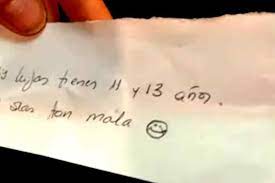 hijas tienen 11 y 13 años.
seas tan mala